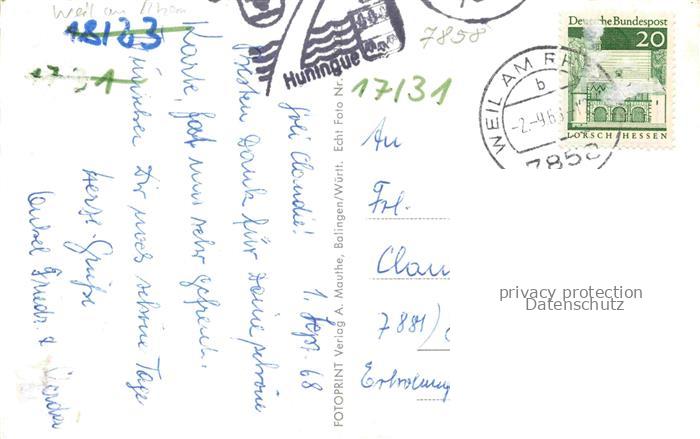 Weil am Rhein
18/33
17/31
Huningue
7858
17/31
Deutsche Bundespost
20
LORSCH/HESSEN
WEIL AM RH
b
-2.-9.6
7858
1. Sept. 68
Claudie!
besten Dank für Deine schöne
Karte, hat uns sehr gefreut.
wünschen Dir noch schöne Tage
Herzl. Grüße
Onkel Friedr. &
FOTOPRINT Verlag A. Mauthe, Balingen/Württ. Echt Foto Nr.
An
Frl.
Clau
7881/
Erholung
privacy protection
Datenschutz